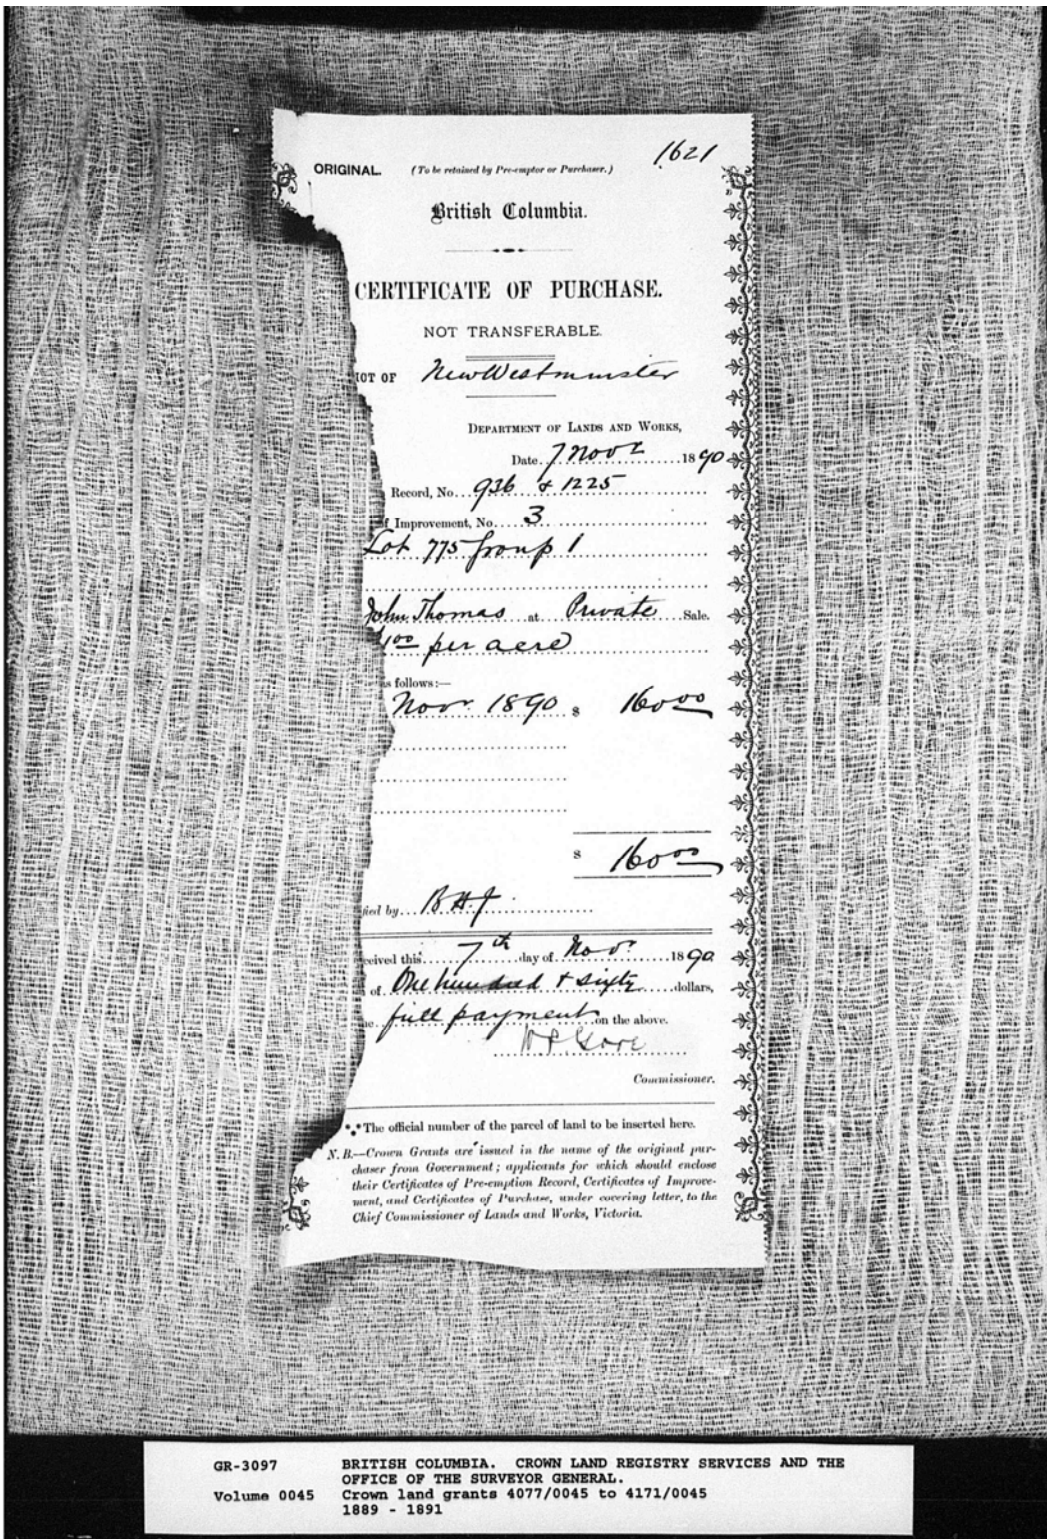 1621
ORIGINAL. (To be retained by Pre-emptor or Purchaser.)
British Columbia.
CERTIFICATE OF PURCHASE.
NOT TRANSFERABLE.
ICT OF New Westminster
DEPARTMENT OF LANDS AND WORKS,
Date 7 Novr 1890
Record, No. 936 & 1225
of Improvement, No. 3
Lot 775 Group 1
John Thomas at Private Sale.
$1.00 per acre
as follows:—
Nov. 1890 $ 160 00
$ 160 00
fied by B H J
ceived this 7th day of Nov. 1890
of One hundred & sixty dollars,
full payment on the above.
W S Gore
Commissioner.
*** The official number of the parcel of land to be inserted here.
N. B.—Crown Grants are issued in the name of the original pur-
chaser from Government; applicants for which should enclose
their Certificates of Pre-emption Record, Certificates of Improve-
ment, and Certificates of Purchase, under covering letter, to the
Chief Commissioner of Lands and Works, Victoria.
GR-3097 BRITISH COLUMBIA. CROWN LAND REGISTRY SERVICES AND THE
OFFICE OF THE SURVEYOR GENERAL.
Volume 0045 Crown land grants 4077/0045 to 4171/0045
1889 - 1891